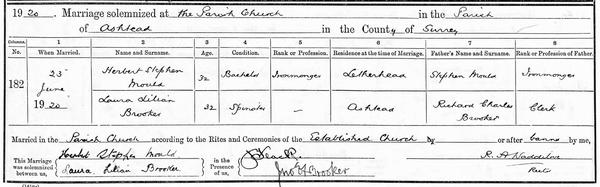 1920. Marriage solemnized at the Parish Church in the Parish
of Ashtead in the County of Surrey
Columns:— 1 2 3 4 5 6 7 8
No. When Married. Name and Surname. Age. Condition. Rank or Profession. Residence at the time of Marriage. Father's Name and Surname. Rank or Profession of Father.
182 23rd June 1920 Herbert Stephen Mould 32 Bachelor Ironmonger Letherhead Stephen Mould Ironmonger
Laura Lilian Brooker 32 Spinster — Ashtead Richard Charles Brooker Clerk
Married in the Parish Church according to the Rites and Ceremonies of the Established Church by or after banns by me,
This Marriage was solemnized between us, Herbert Stephen Mould
Laura Lilian Brooker
in the Presence of us,
Brooker
R. A.
Rector